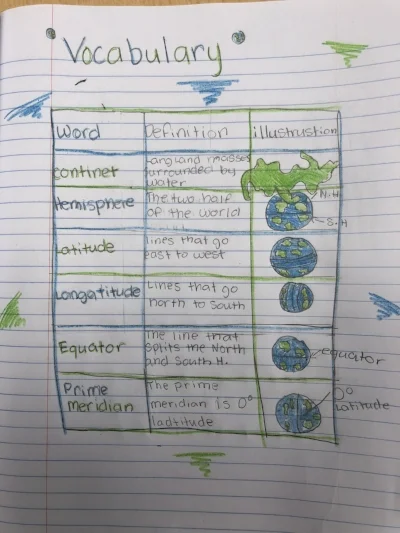 Vocabulary
Word Definition illustrastion
continet Larg land masses
surrounded by
water
Hemisphere The two half
of the world
N.H
S.H
Latitude lines that go
east to west
Longatitude Lines that go
north to South
Equator The line that
splits the North
and South H.
equator
Prime
meridian
The prime
meridian is 0°
ladtitude
0°
Latitude